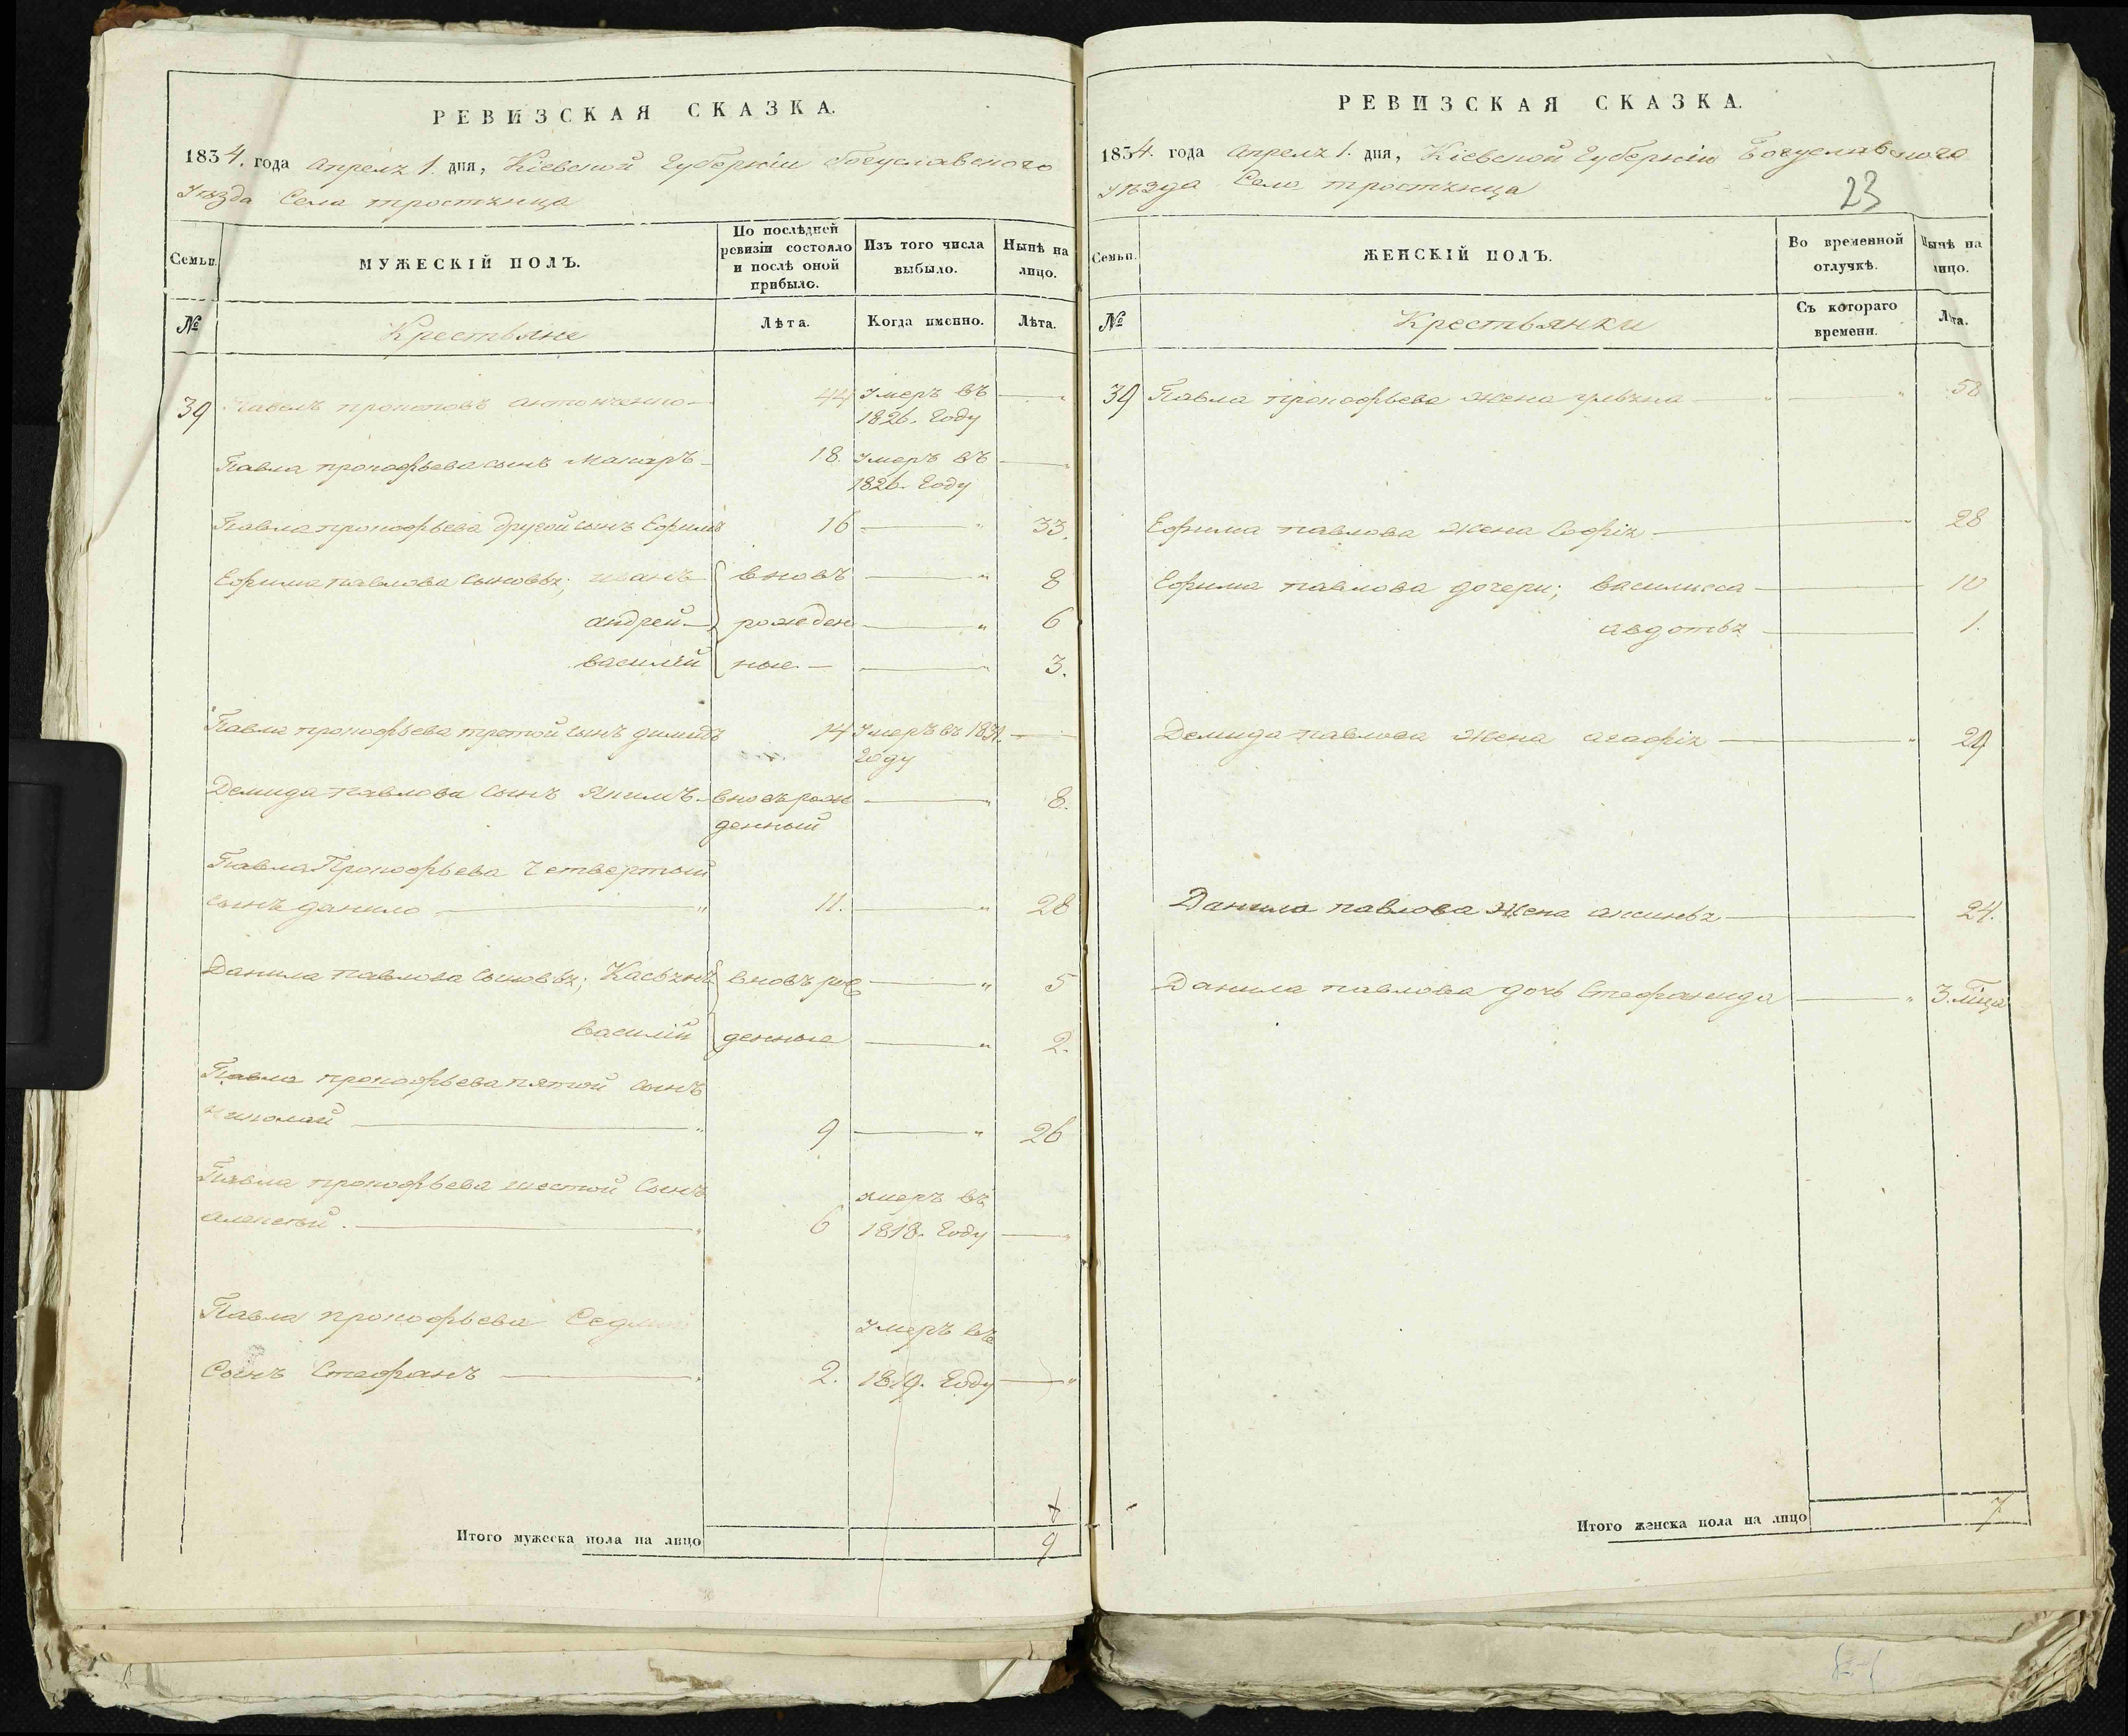 РЕВИЗСКАЯ СКАЗКА.
1834. года Апреля 1. дня, Кіевской Губерніи Богуславского
Уѣзда Села тростянца
Семьи.
МУЖЕСКІЙ ПОЛЪ.
По послѣдней
ревизіи состояло
и послѣ оной
прибыло.
Изъ того числа
выбыло.
Нынѣ на
лицо.
№
Крестьяне
Лѣта.
Когда именно.
Лѣта.
39 Павелъ прокоповъ антонченко 44 Умеръ въ
1826. Году
Павла прокофьева сынъ Макаръ 18. Умеръ въ
1826. Году
Павла прокофьева другой сынъ Ефимъ 16 33.
Ефима павлова сыновья; иванъ вновъ 8
андрей рожден 6
василій ные 3.
Павла прокофьева третой сынъ димидъ 14 Умеръ въ 1831.
Году
Демида павлова сынъ Якимъ вновъ рож 8.
денный
Павла Прокофьева Четвертый
сынъ данило 11. 28
Данила павлова сыновья; Касьянъ вновъ рож 5
василій денные 2.
Павла прокофьева пятой сынъ
николай 9 26
Павла прокофьева шестой Сынъ умеръ въ
алексей. 6 1818. Году
Павла прокофьева Седмой Умеръ въ
Сынъ Стефанъ 2. 1819. Году
Итого мужеска пола на лицо 9
РЕВИЗСКАЯ СКАЗКА.
1834. года Апреля 1. дня, Кіевской Губерніи Богуславского
Уѣзда Села тростянца
23
Семьи.
ЖЕНСКІЙ ПОЛЪ.
Во временной
отлучкѣ.
Нынѣ на
лицо.
№
Крестьянки
Съ котораго
времени.
Лѣта.
39 Павла прокофьева жена ульяна 58
Ефима павлова жена Софія 28
Ефима павлова дочери; василисса 10
авдотья 1.
Демида павлова жена агафія 29
Данила павлова жена аксинья 24.
Данила павлова дочь Стефанида 3. мца
Итого женска пола на лицо 7